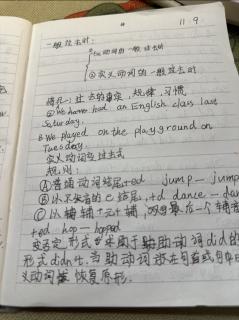 11.9
一般过去时:
①be动词的一般过去时
②实义动词的一般过去时
情况一: 过去的事实, 规律, 习惯
①We had an English class last
Saturday.
②We played on the playground on
Tuesday.
实义动词变过去式
规则:
Ⓐ普通动词结尾+ed jump—jump
Ⓑ以不发音的e结尾,+d dance—dan
Ⓒ以辅+元+辅,双写最后一个辅音
+ed hop—hopped
变否定形式要采用助动词did的
形式didn't.当助动词放在句首或句中
义动词恢复原形.